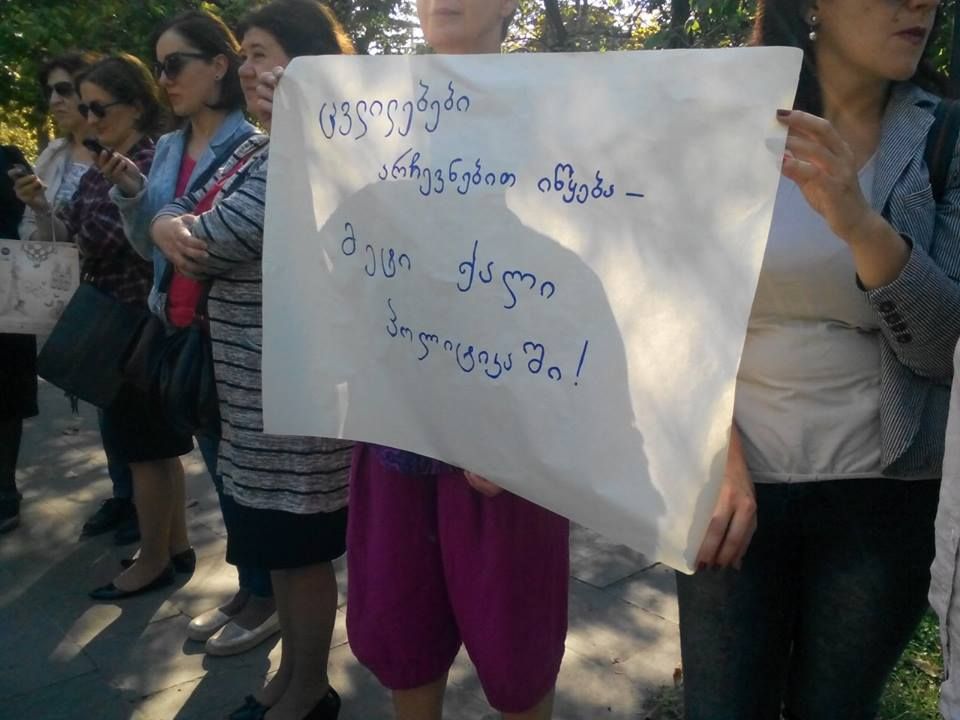 ცვლილებები
არჩევნებით იწყება –
მეტი ქალი
პოლიტიკაში!